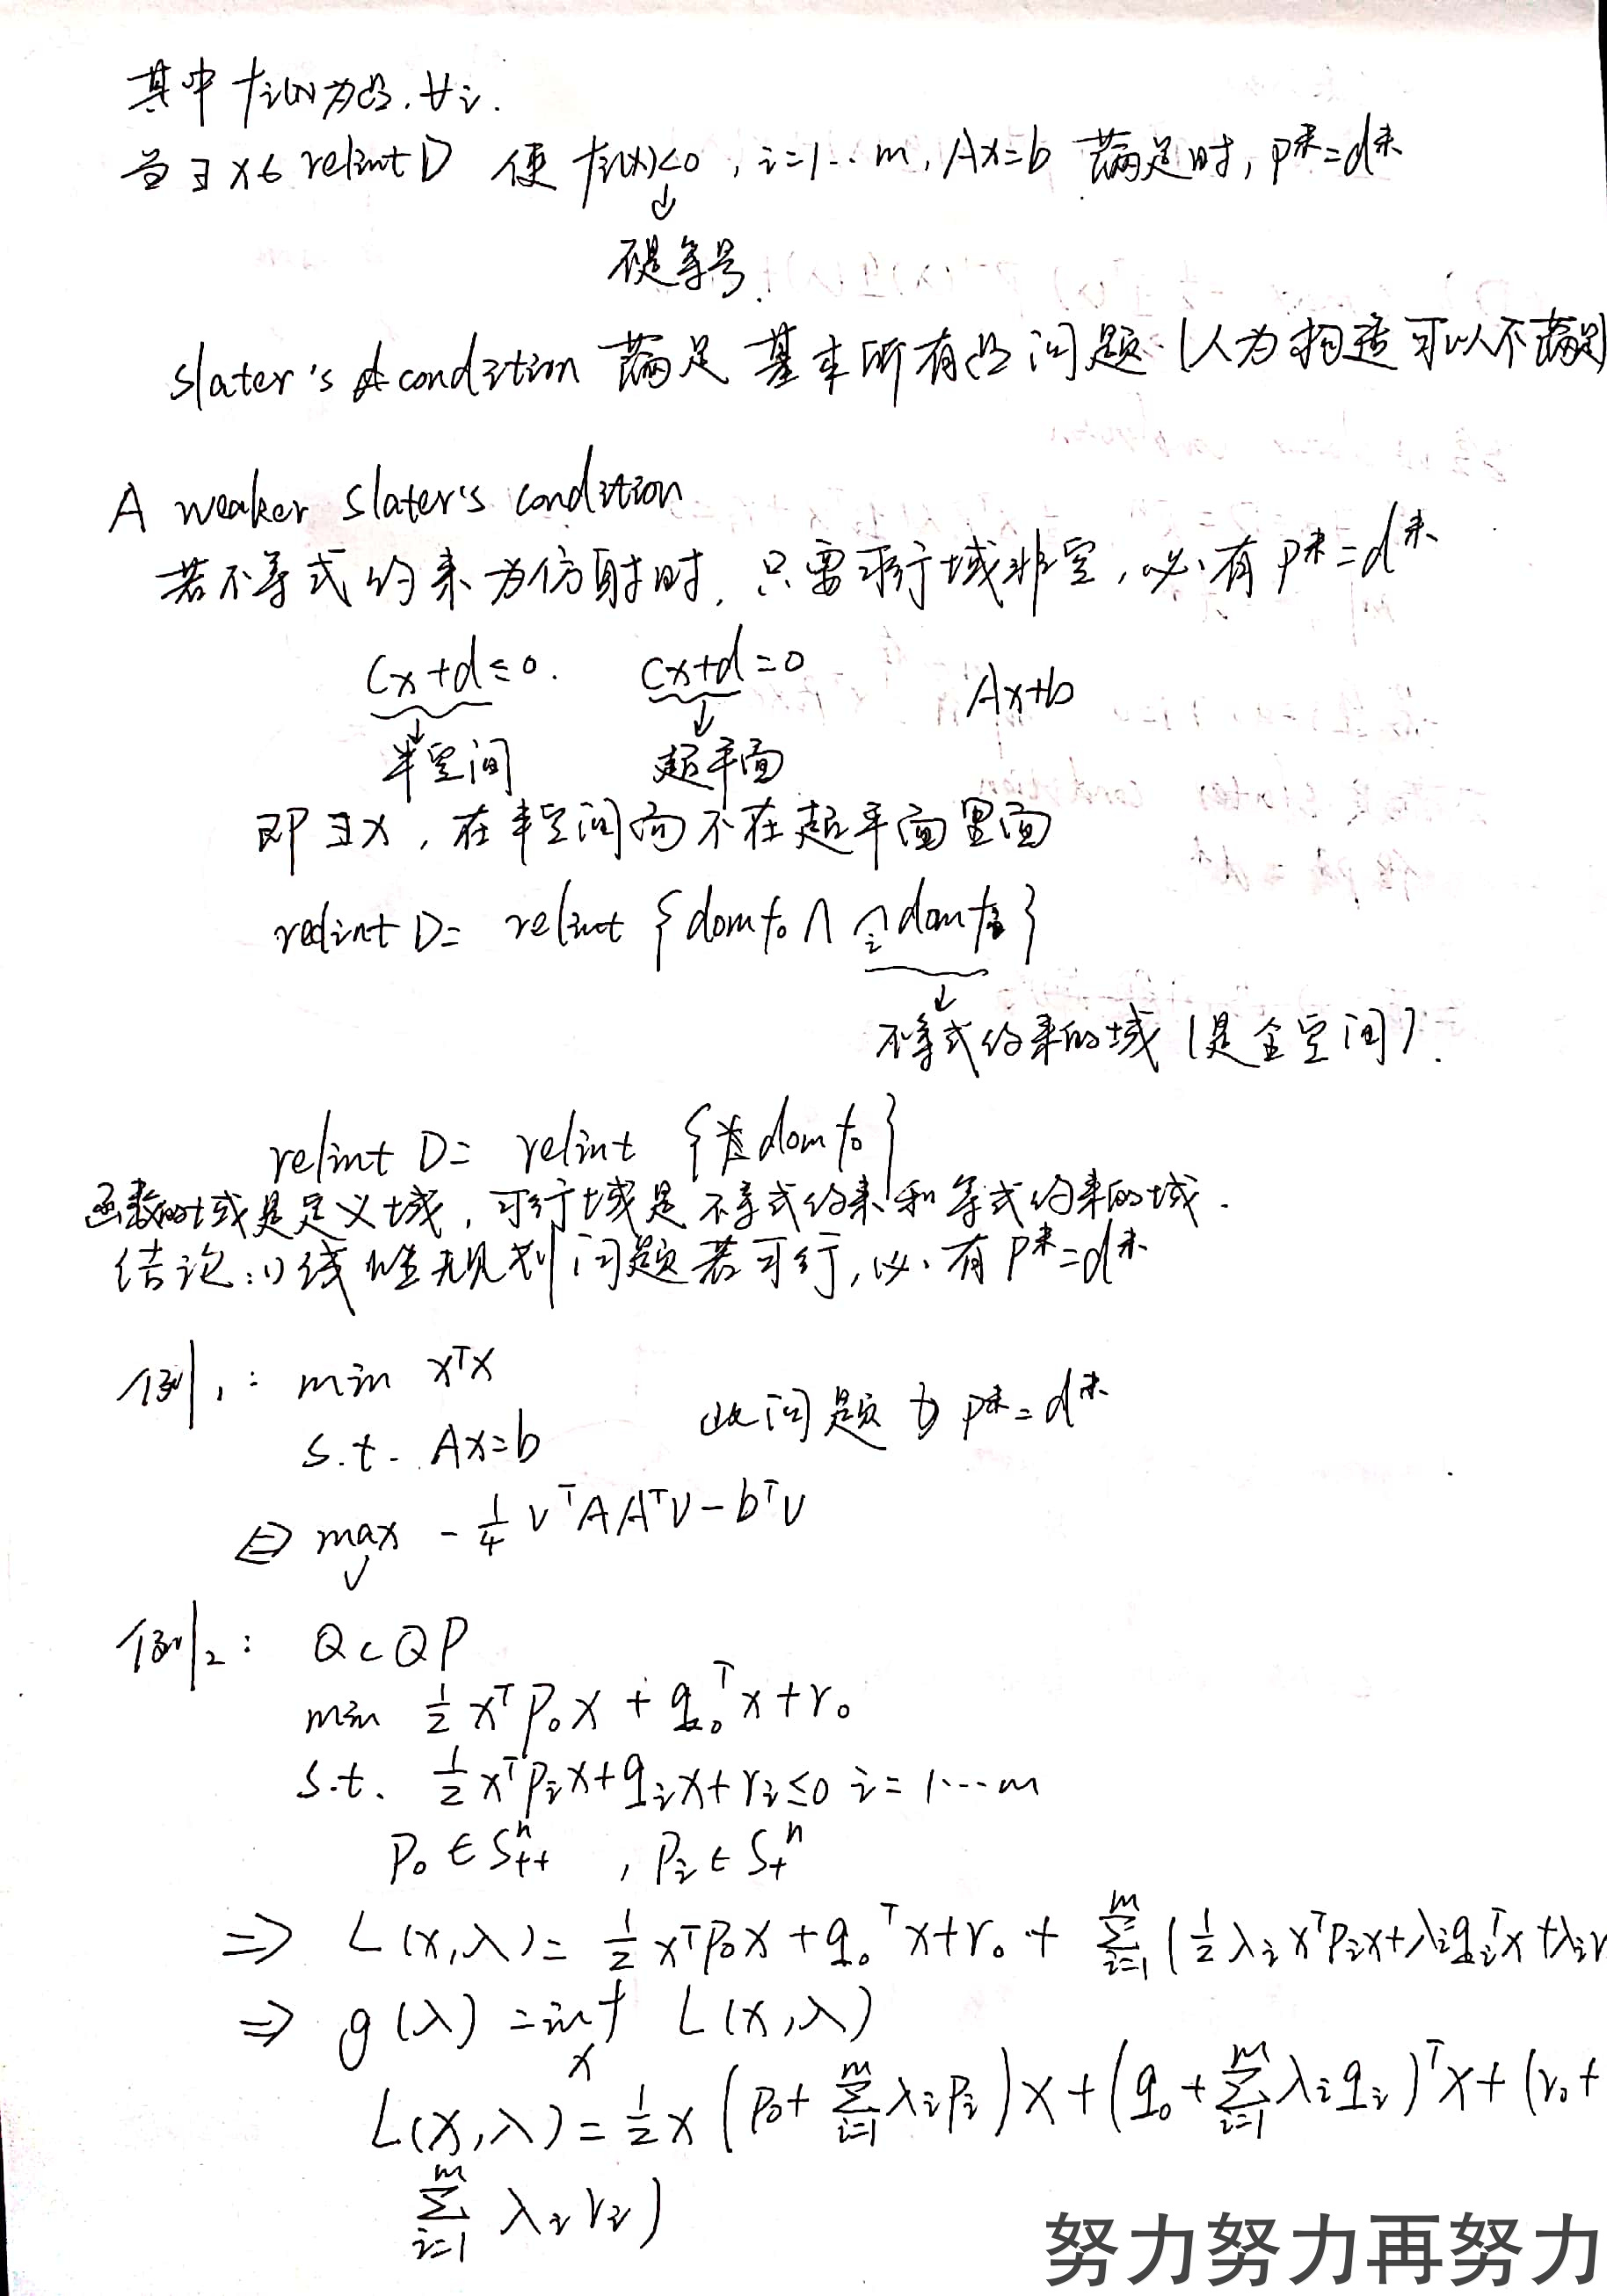 其中 fi(x)为凸, ∀i.
当∃x∈relint D 使 fi(x)<0, i=1…m, Ax=b 满足时, p*=d*
↓
不是等号.
slater's condition 满足基本所有凸问题. (人为构造可以不满足)
A weaker slater's condition
若不等式约束为仿射时, 只要可行域非空, 必有 p*=d*
Cx+d≤0. Cx+d=0 Ax+b
↓ ↓
半空间 超平面
即∃x, 在半空间而不在超平面里面
relint D= relint {domf₀ ∩ ∩ᵢ domfᵢ}
↓
不等式约束的域 (是全空间).
relint D= relint {domf₀}
函数的域是定义域, 可行域是不等式约束和等式约束的域.
结论: 1) 线性规划问题若可行, 必有 p*=d*
例1: min xᵀx
s.t. Ax=b 此问题 为 p*=d*
⇔ max − 1/4 vᵀAAᵀv − bᵀv
v
例2: QCQP
min 1/2 xᵀP₀x + q₀ᵀx + r₀
s.t. 1/2 xᵀPᵢx+qᵢx+rᵢ≤0 i=1…m
P₀∈Sⁿ₊₊ , Pᵢ∈Sⁿ₊
⇒ L(x,λ)= 1/2 xᵀP₀x + q₀ᵀx+r₀ + Σᵢ₌₁ᵐ (1/2 λᵢxᵀPᵢx+λᵢqᵢᵀx+λᵢr
⇒ g(λ) = inf L(x,λ)
x
L(x,λ) = 1/2 x (P₀+ Σᵢ₌₁ᵐ λᵢPᵢ)x + (q₀+Σᵢ₌₁ᵐ λᵢqᵢ)ᵀx + (r₀+
Σᵢ₌₁ᵐ λᵢrᵢ)
努力努力再努力